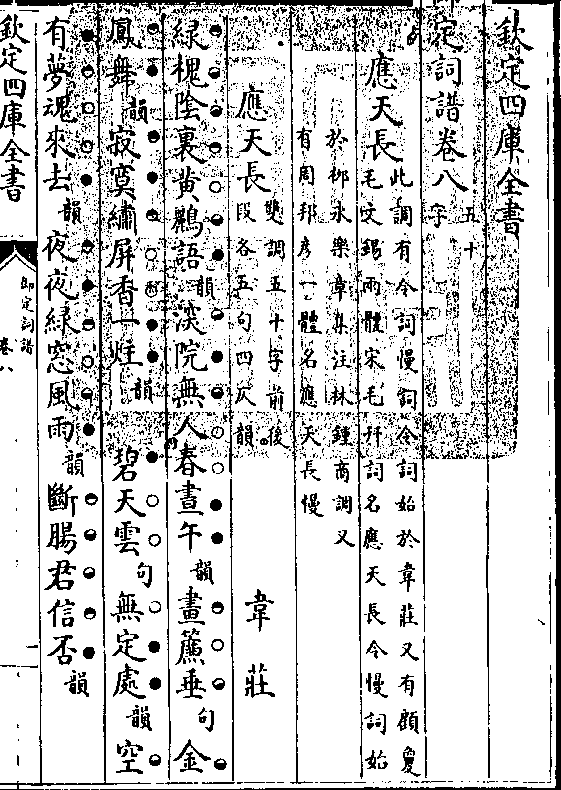 欽定四庫全書
定詞譜卷八
五十
字
應天長
此調有令詞慢詞令詞始於韋莊又有顧敻
毛文錫兩體宋毛幵詞名應天長令慢詞始
於柳永樂章集注林鍾商調又
有周邦彥一體名應天長慢
應天長
雙調五十字前後
段各五句四仄韻
韋莊
綠槐陰裏黄鸝語韻深院無人春晝午韻畫簾垂句金
鳳舞韻寂寞繡屏香一炷韻 碧天雲句無定處韻空
有夢魂來去韻夜夜綠窓風雨韻斷腸君信否韻
欽定四庫全書
御定詞譜
卷八
一